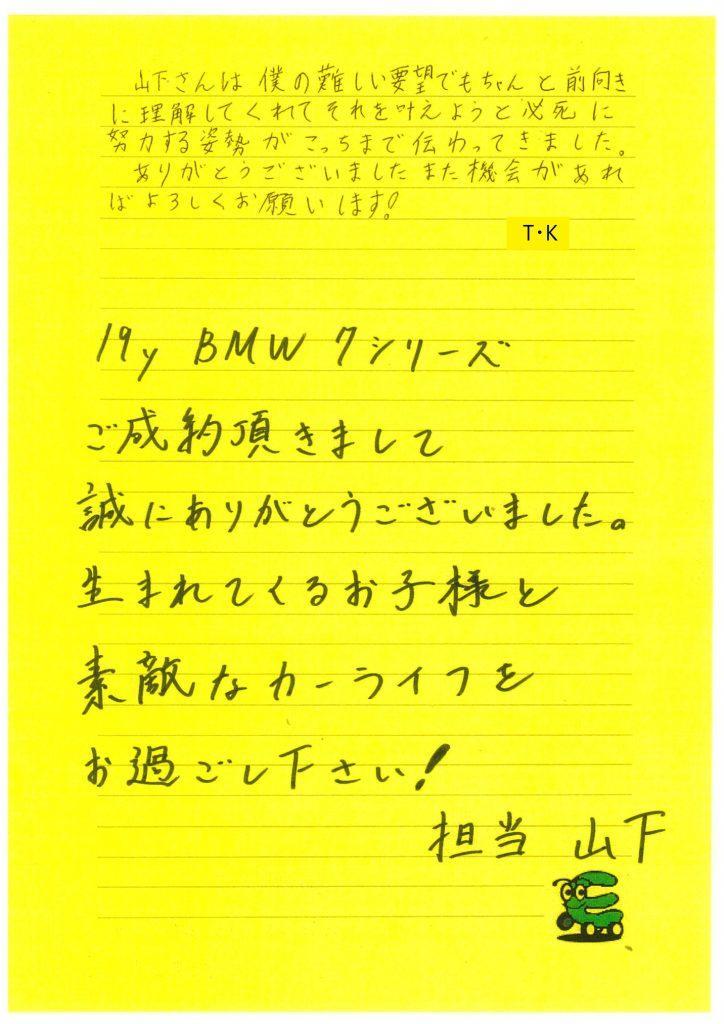 山下さんは僕の難しい要望でもちゃんと前向き
に理解してくれてそれを叶えようと必死に
努力する姿勢がこっちまで伝わってきました。
ありがとうございましたまた機会があれ
ばよろしくお願いします!
T・K
19y BMW 7シリーズ
ご成約頂きまして
誠にありがとうございました。
生まれてくるお子様と
素敵なカーライフを
お過ごし下さい!
担当 山下